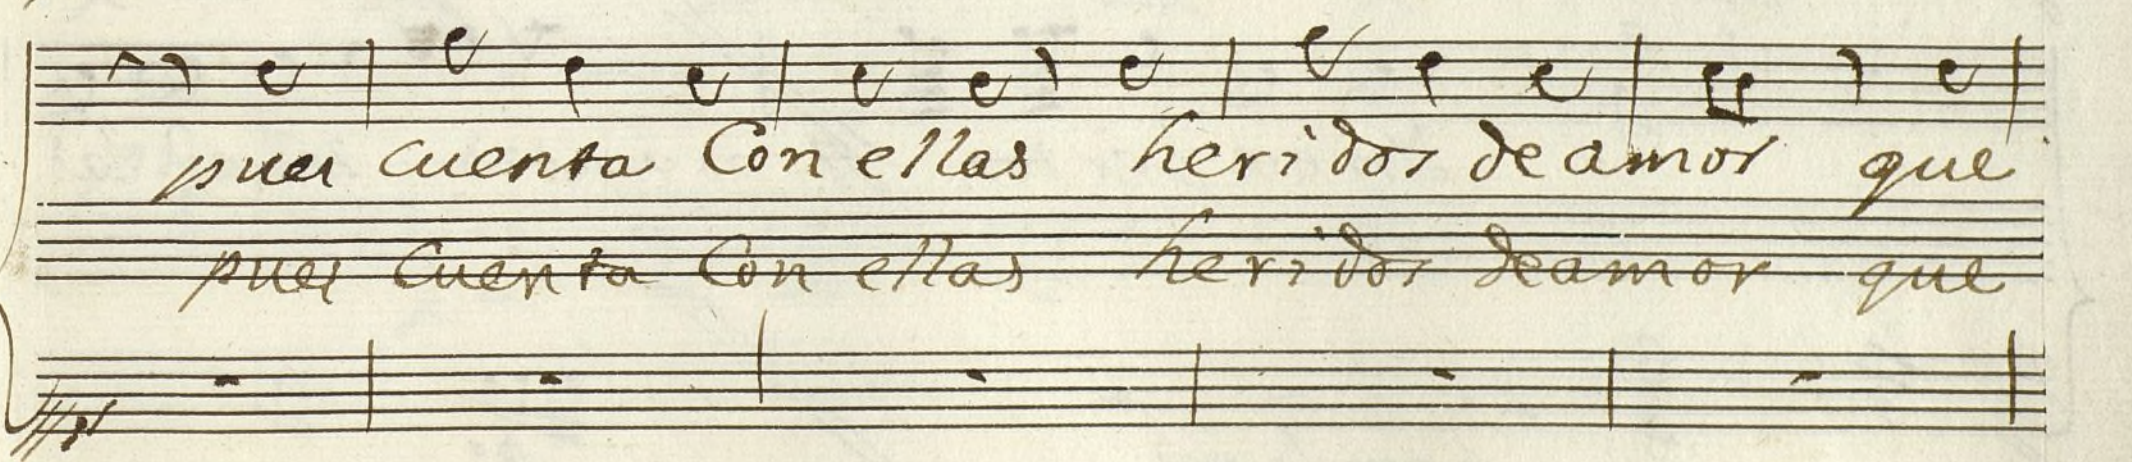 pues cuenta Con ellas heridos de amor que
pues Cuenta Con ellas heridos de amor que